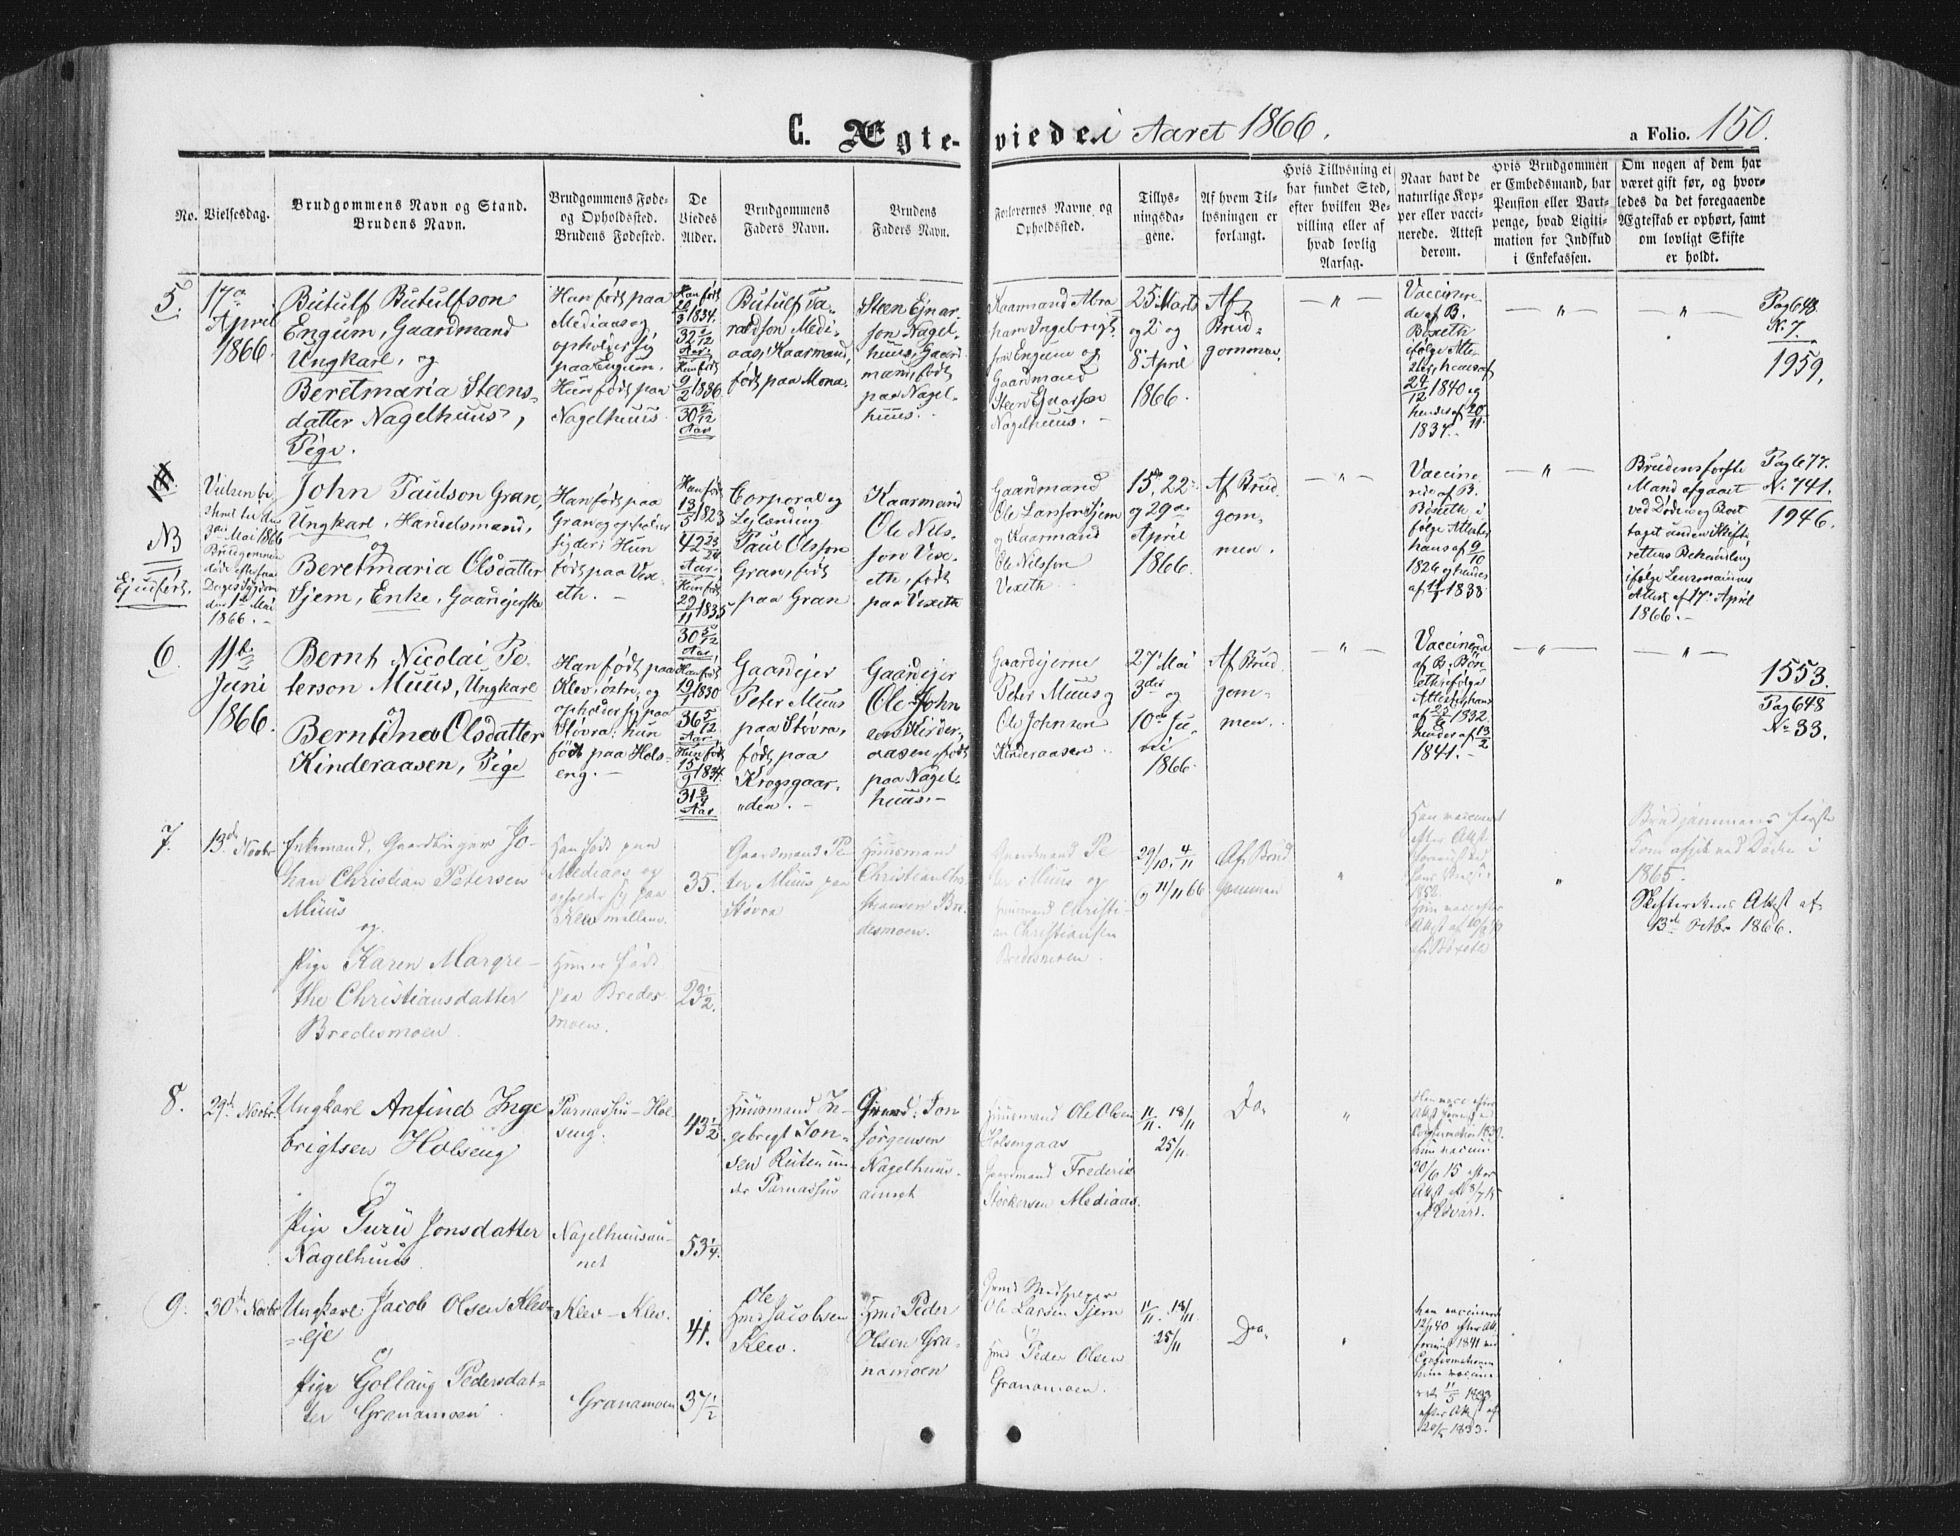 C. Ægte-viede i Aaret 1866.
a Folio. 150.
No.
Vielsesdag.
Brudgommens Navn og Stand.
Brudens Navn.
Brudgommens Føde-
og Opholdssted.
Brudens Fødested.
De
Viedes
Alder.
Brudgommens
Faders Navn.
Brudens
Faders Navn.
Forlovernes Navne og
Opholdssted.
Tillys-
ningsda-
gene.
Af hvem Til-
lysningen er
forlangt.
Hvis Tillysning ei
har fundet Sted,
efter hvilken Be-
villing eller af
hvad lovlig
Aarsag.
Naar havt de
naturlige Kop-
per eller vacci-
nerede. Attest
derom.
Hvis Brudgommen
er Embedsmand, har
Pension eller Vart-
penge, hvad Ligiti-
mation for Indskud
i Enkekassen.
Om nogen af dem har
været gift før, og hvor-
ledes da det foregaaende
Ægteskab er ophørt, samt
om lovligt Skifte
er holdt.
5.
17de
April
1866.
Butulf Butulfson
Engum, Gaardmand
Ungkarl, og
Beretmaria Steens-
datter Nagelhuus,
Pige.
Han født paa
Mediaas og
opholder sig
paa Engum,
Hun født paa
Nagelhuus.
Han født
20/3 1834.
32 2/12
Aar
Hun født
9/2 1836.
30 2/12
Aar
Butulf Ta-
raldson Medi-
aas, Kaarmand,
født paa Mona.
Steen Ejnar-
son Nagel-
huus, Gaard-
mand, født
paa Nagel-
huus.
Kaarmand Abra
ham Ingebrigt-
son Engum og
Gaardmand
Steen Ejnarson
Nagelhuus.
25 Marts
og 2 og
8 April
1866.
Af
Brud-
gommen.
Vaccinere-
de af B.
Boxeth
ifølge Atte-
ster, hans af
24/12 1840 og
hendes af 20/11
1837.
Pag 648.
N. 7.
1959.
NB
Ejudført.
Vielsen be-
stemt til den
3die Mai 1866
Brudgommen
døde efter faa
Dages Sygdom
den 1ste Mai
1866.
John Paulson Gran,
Ungkarl, Handelsmand,
og
Beretmaria Olsdatter
Tjem, Enke, Gaardejerske
Han født paa
Gran og opholder
sig der; Hun
født paa Vex-
eth.
Han født
13/5 1823
42 23/24
Aar
Hun født
29/11 1835
30 5/12
Aar
Corporal og
Lejlænding
Paul Olsson
Gran, født
paa Gran
Kaarmand
Ole Nils-
son Vex-
eth, født
paa Vexeth
Gaardmand
Ole Larsson Tjem
og Kaarmand
Ole Nilsson
Vexeth
15de, 22
og 29de
April
1866.
Af Brud
gom-
men.
Vaccine-
rede af B.
Boxeth i
følge Attester
hans af 9/10
1826 og hendes
af 11/7 1838
Brudens første
Mand afgaaet
ved Døden og Boet
taget under Skifte-
rettens Behandling
ifølge Lensmandens
Attest af 17 April
1866.
Pag 677.
N. 741.
1946.
6.
11te
Juni
1866.
Bernt Nicolai Pe-
terson Muus, Ungkarl
og
Berntine Olsdatter
Kinderaasen, Pige
Han født paa
Klev, østre, og
opholder sig paa
Støvra; hun
født paa Hols-
eng.
Han født
19/1 1830
36 5/12
Aar
Hun født
15/9 1834.
31 3/4
Aar
Gaardejer
Peter Muus
paa Støvra,
født paa
Krogsgaar-
den.
Gaardejer
Ole John
son Kinder-
aasen, født
paa Nagel-
huus.
Gaardejerne
Peter Muus og
Ole Johnson
Kinderaasen.
27 Mai
3die og
10de Ju-
ni
1866.
Af Brud
gom-
men.
Vaccinerede
af B. Box-
eth ifølge
Attester, hans
af 25/8 1832.
hendes af 13/2
1841.
1553.
Pag 648
No 33.
7.
13de Novbr
Enkemand, Gaardbruger Jo-
han Christian Petersen
Muus
og
Pige Karen Margre-
the Christiansdatter
Bredesmoen.
Han født paa
Mediaas og
opholder sig paa
Klev mellem.
Hun er født
paa Bredes-
moen.
35.
23 1/2.
Gaardmand Pe-
ter Muus paa
Støvra
Huusmand
Christian Chr-
stiansen Bre-
desmoen.
Gaardmand Pe
ter Muus og
Huusmand Christi-
an Christiansen
Bredesmoen.
29/10. 4/11
og 11/11 66
Af Brud
gommen
Han vaccineret
efter Attest
1852.
Brudgommens første
Kone afgik ved Døden i
1865.
Skifterettens Attest af
13de Octbr 1866.
8.
29de Novbr.
Ungkarl Anfind Inge
brigtsen Holseng
og
Pige Guru Jonsdatter
Nagelhuus
Parnassus - Hol-
seng.
Nagelhuusau-
net
43 1/2.
53 1/4.
Huusmand In-
gebregt Jon-
sen Ruten un-
der Parnassus
Gaard: Jon
Jørgensen
Nagelhuus-
aunet
Huusmand Ole Olsen
Holsengaas
Gaardmand Frederik
Størkersen Mediaas.
11/11. 18/11
25/11.
Do.
9.
30te Novbr
Ungkarl Jacob Olsen Klev-
eje
og
Pige Gollaug Pedersdat-
ter Granamoen
Klev - Klev.
Granamoen
41.
37 1/2
Ole
Hmd Jacobsen
Klev.
Hmd Peder
Olsen Gra-
namoen
Ole Larsen Tjem
og
Hmd Peder Olsen
Granamoen.
11/11. 18/11
25/11
Do.
Han vaccineret
12/7 40 efter At.
1841 ved
Confirmationen
Hun vaccine-
ret 11/5 1833
efter Attest af
1833.